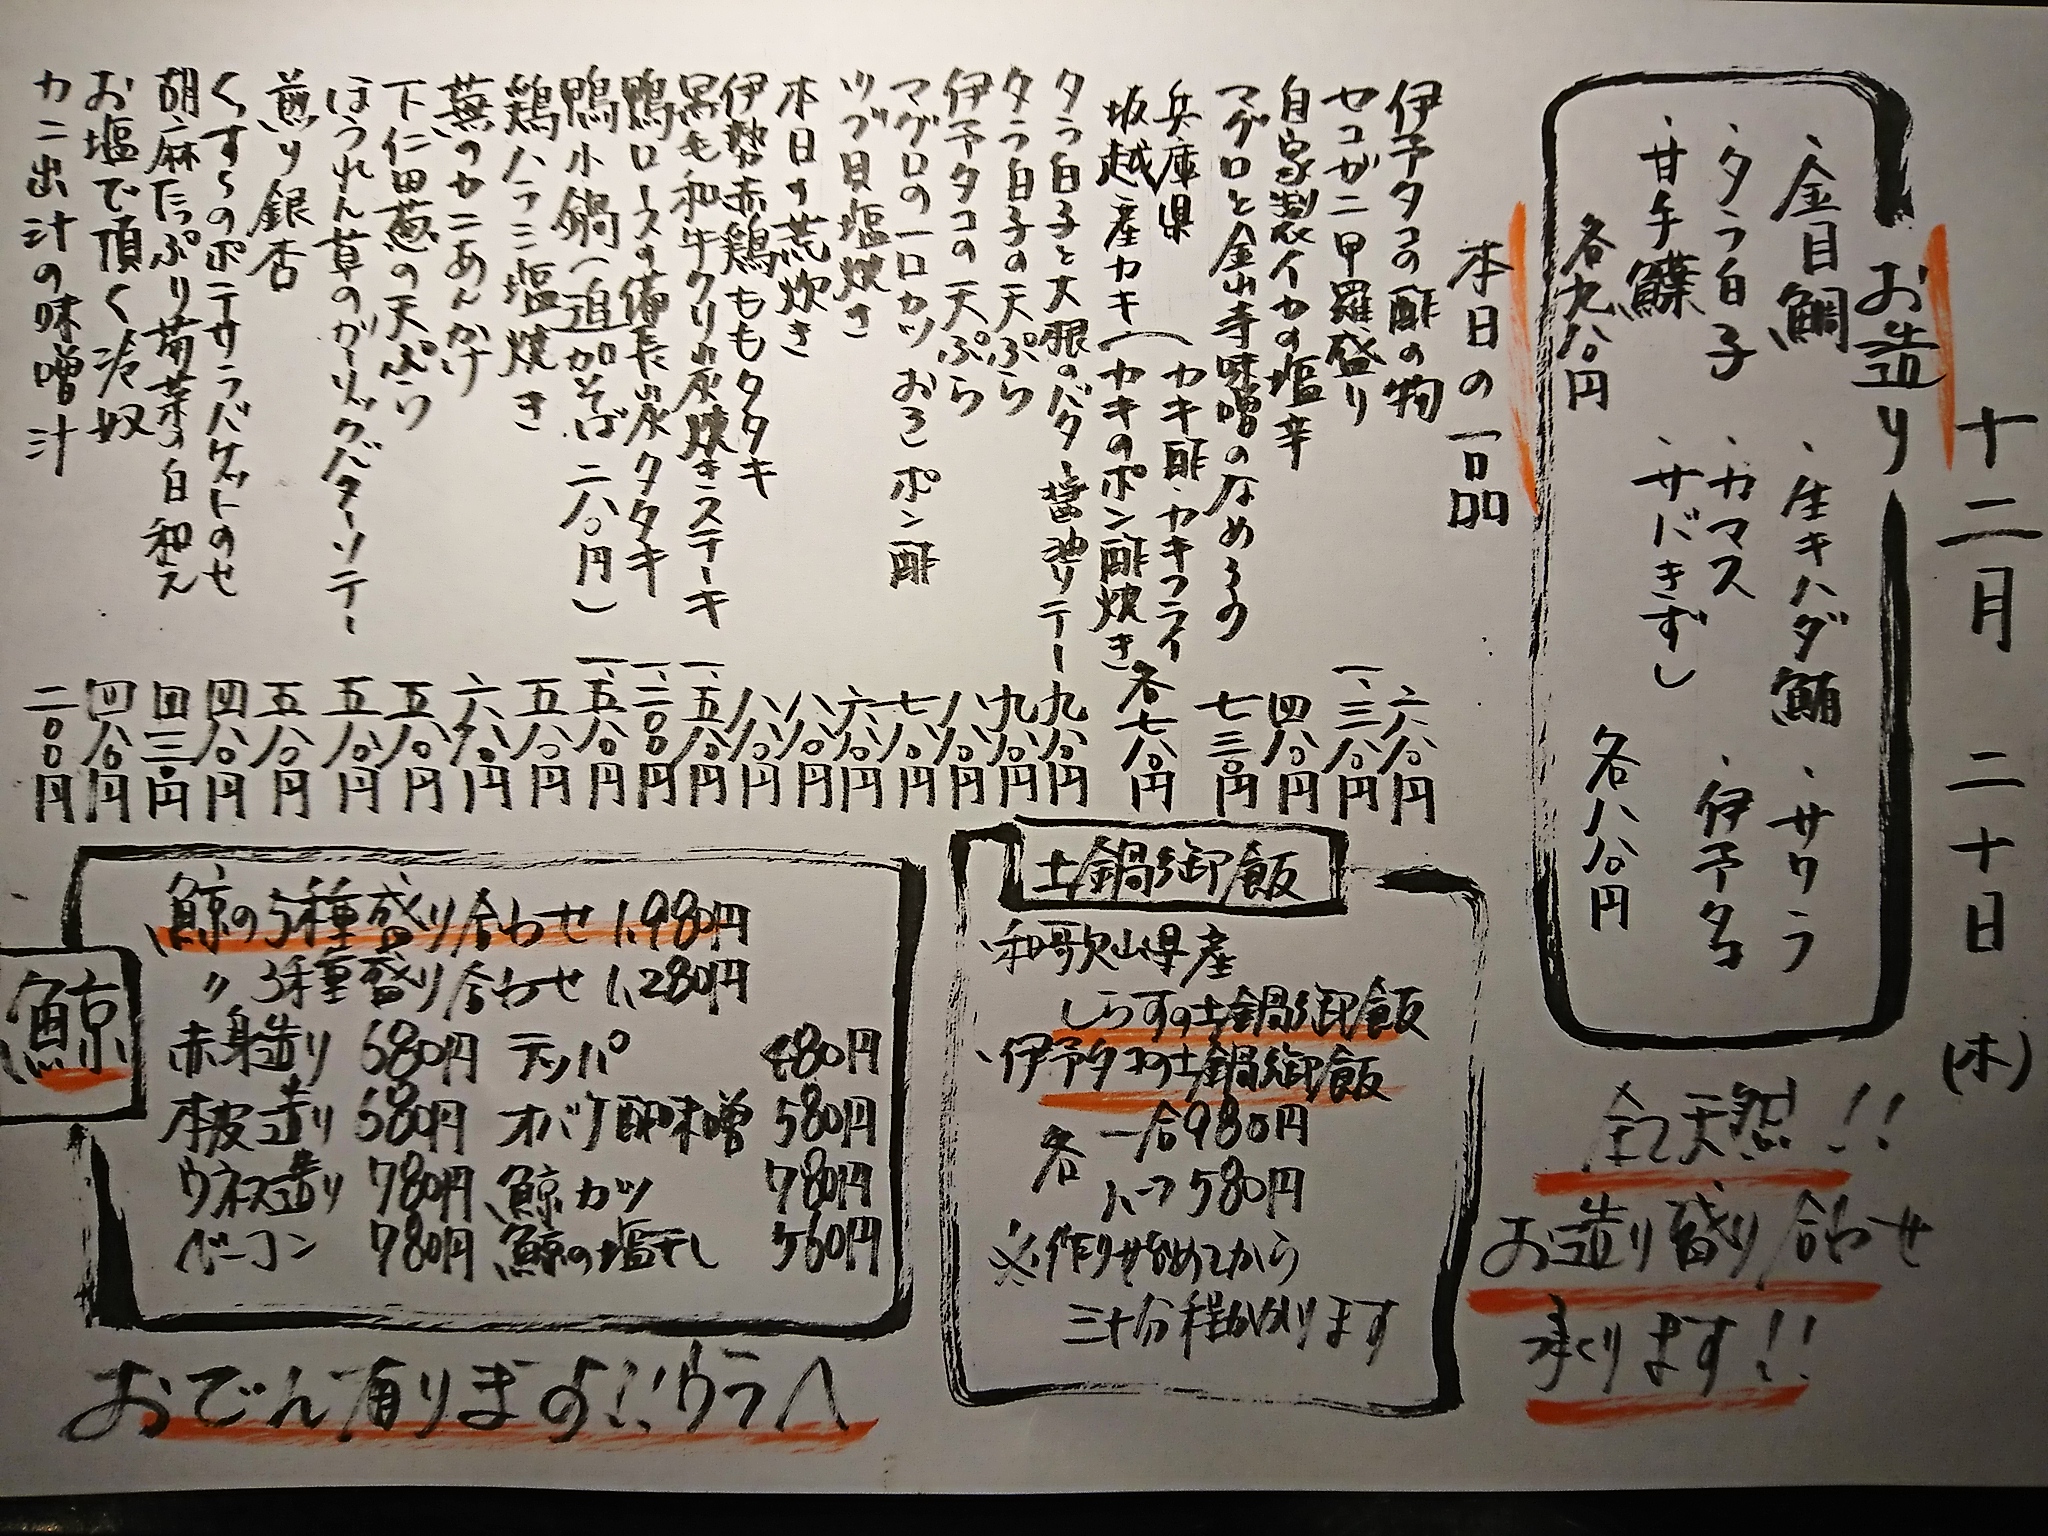 十二月二十日(木)
お造り
・金目鯛 ・生キハダ鮪 ・サワラ
・タラ白子 ・カマス ・伊予タコ
・甘手鰈 ・サバきずし
各九八〇円 各八八〇円
全て天然!!
お造り盛り合わせ
承ります!!
本日の一品
伊予タコの酢の物 六八〇円
セコガニ甲羅盛り 一、三八〇円
自家製イカの塩辛 四八〇円
マグロと金山寺味噌のなめろう 七三〇円
兵庫県
坂越産カキ(カキ酢・カキフライ
(カキのポン酢焼き 各七八〇円
タラ白子と丈銀のバター醤油ソテー 九八〇円
タラ白子の天ぷら 九八〇円
伊予タコの天ぷら 八八〇円
マグロの一口カツ おろしポン酢 七八〇円
ツブ貝塩焼き 六八〇円
本日の荒炊き 八八〇円
伊勢赤鶏ももタタキ 八八〇円
黒毛和牛クリ炭焼きステーキ 一、五八〇円
鴨ロースの備長炭タタキ 一、二〇〇円
鴨小鍋(追加そば 二八〇円) 一、五八〇円
鶏ハラミ塩焼き 五八〇円
蕪のカニあんかけ 六八〇円
下仁田葱の天ぷら 五八〇円
ほうれん草のガーリックバターソテー 五八〇円
煎り銀杏 五八〇円
くずしのポテサラバゲットのせ 四八〇円
胡麻たっぷり菊菜の白和え 四三〇円
お塩で頂く冷奴 四八〇円
カニ出汁の味噌汁 二〇〇円
土鍋御飯
・和歌山県産
しらすの土鍋御飯
・伊予タコの土鍋御飯
各 一合980円
ハーフ580円
※作り始めてから
三十分程かかります
鯨
鯨の5種盛り合わせ 1,980円
〃 3種盛り合わせ 1,280円
赤身造り 580円 テッパ 480円
本皮造り 580円 オバケ酢味噌 580円
ウネス造り 780円 鯨カツ 780円
ベーコン 780円 鯨の塩干し 560円
おでん有ります!!ウラへ